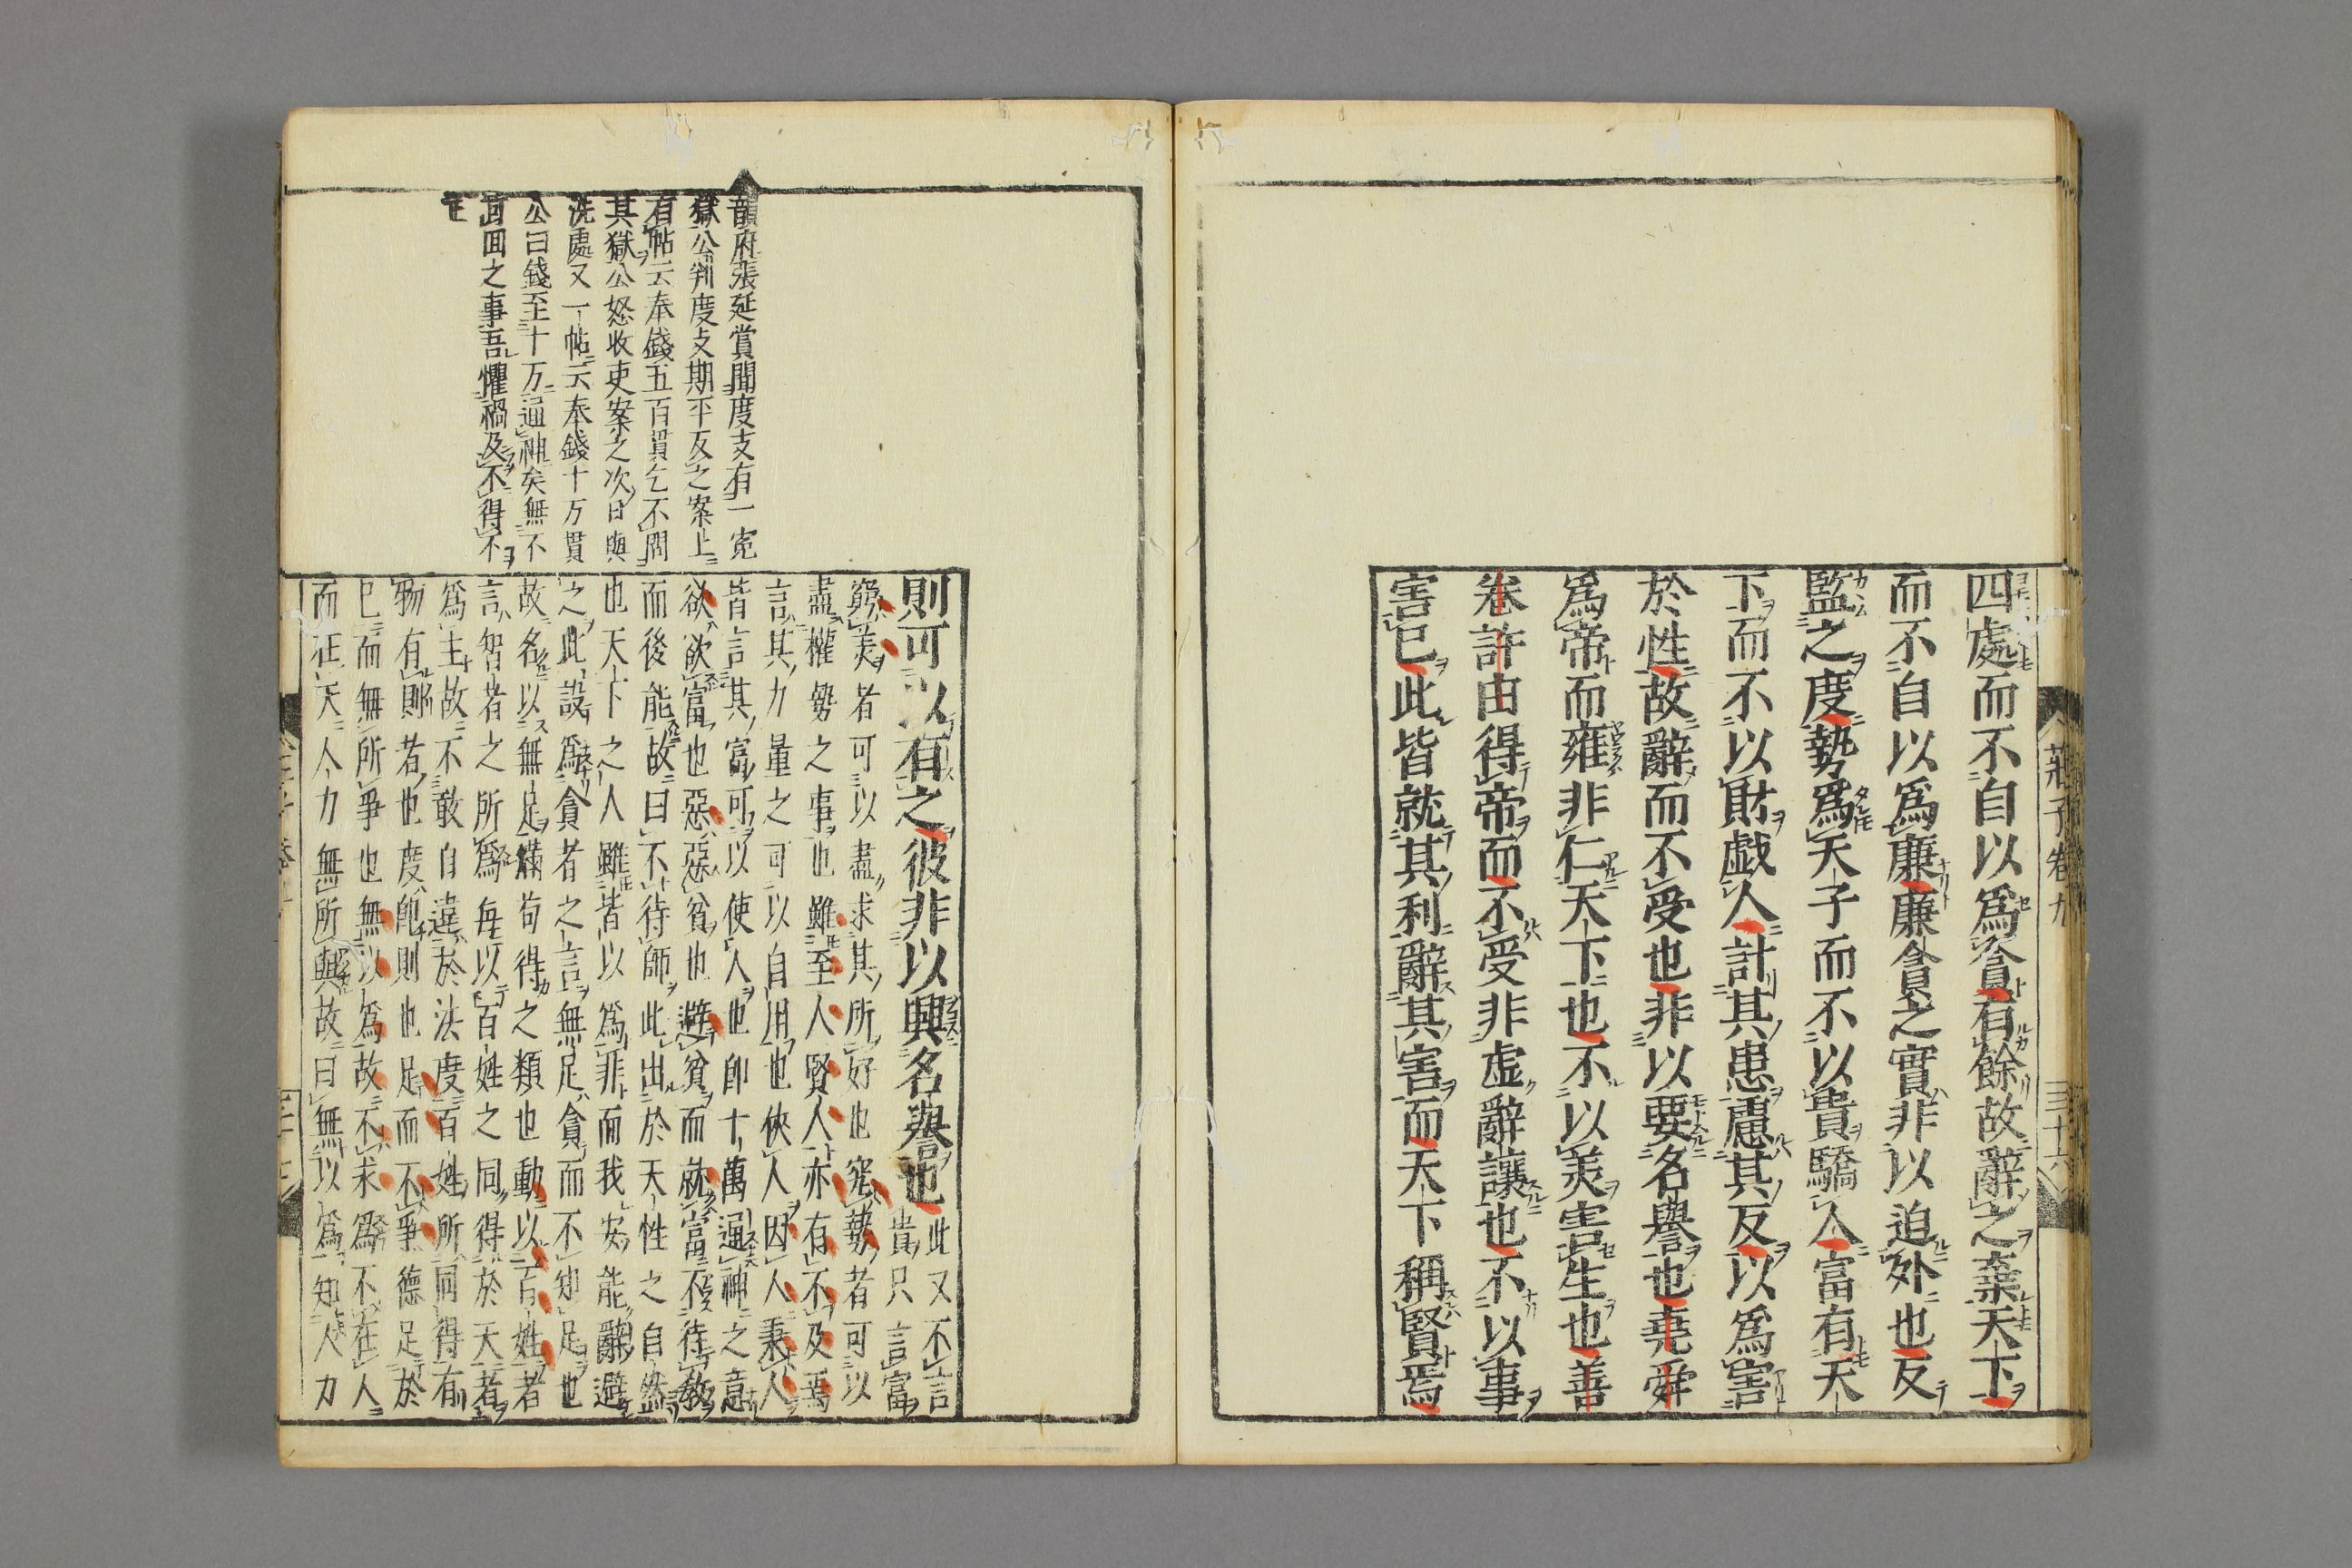 莊子卷九
三十六
四處而不自以爲貪有餘故辭之棄天下
而不自以爲廉廉貪之實非以迫外也反
監之度勢爲天子而不以貴驕人富有天
下而不以財戯人計其患慮其反以爲害
於性故辭而不受也非以要名譽也堯舜
爲帝而雍非仁天下也不以美害生也善
卷許由得帝而不受非虛辭讓也不以事
害已此皆就其利辭其害而天下稱賢焉
則可以有之彼非以興名譽也此又不言
貴只言富
窮美者可以盡求其所好也究勢者可以
盡權勢之事也雖至人賢人亦有不及焉
言其力量之可以自用也俠人因人秉人
皆言其富可以使人也即十萬通神之意
欲欲富也惡惡貧也避貧而就富不待教
而後能故曰不待師此出於天性之自然
也天下之人雖皆以爲非而我安能辭避
之此設爲貪者之言無足貪而不知足也
故名以無足滿苟得之類也動以百姓者
言智者之所爲每以百姓之同得於天者
爲主故不敢自違於法度百姓所同得有
物有則者也度即則也足而不爭德足於
已而無所爭也無以爲故不求爲不在人
而在天人力無所與故曰無以爲知人力
韻府張延賞聞度支有一寃
獄公判度支期平反之案上
有帖云奉錢五百貫乞不問
其獄公怒收吏案之次日與
洗處又一帖云奉錢十万貫
公曰錢至十万通神矣無不
可回之事吾懼禍及不得不
止